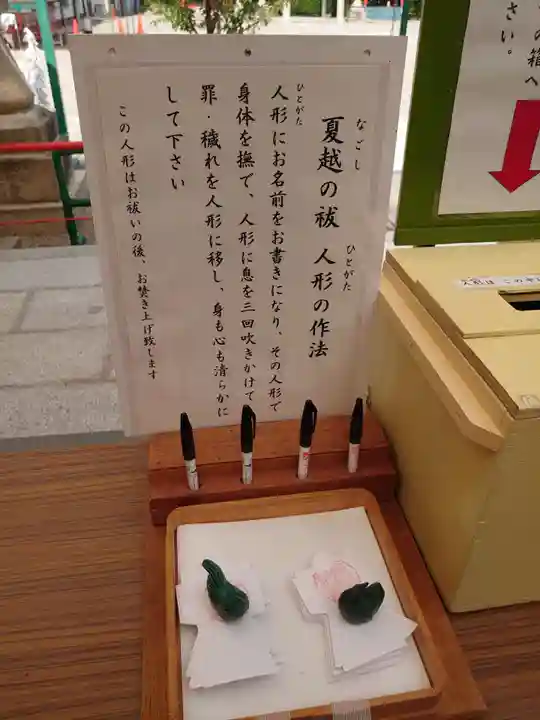 夏越の祓 人形の作法
なごし
ひとがた
人形にお名前をお書きになり、その人形で
ひとがた
身体を撫で、人形に息を三回吹きかけて
罪・穢れを人形に移し、身も心も清らかに
して下さい
この人形はお祓いの後、お焚き上げ致します
の箱へ
さい。
人形は この中